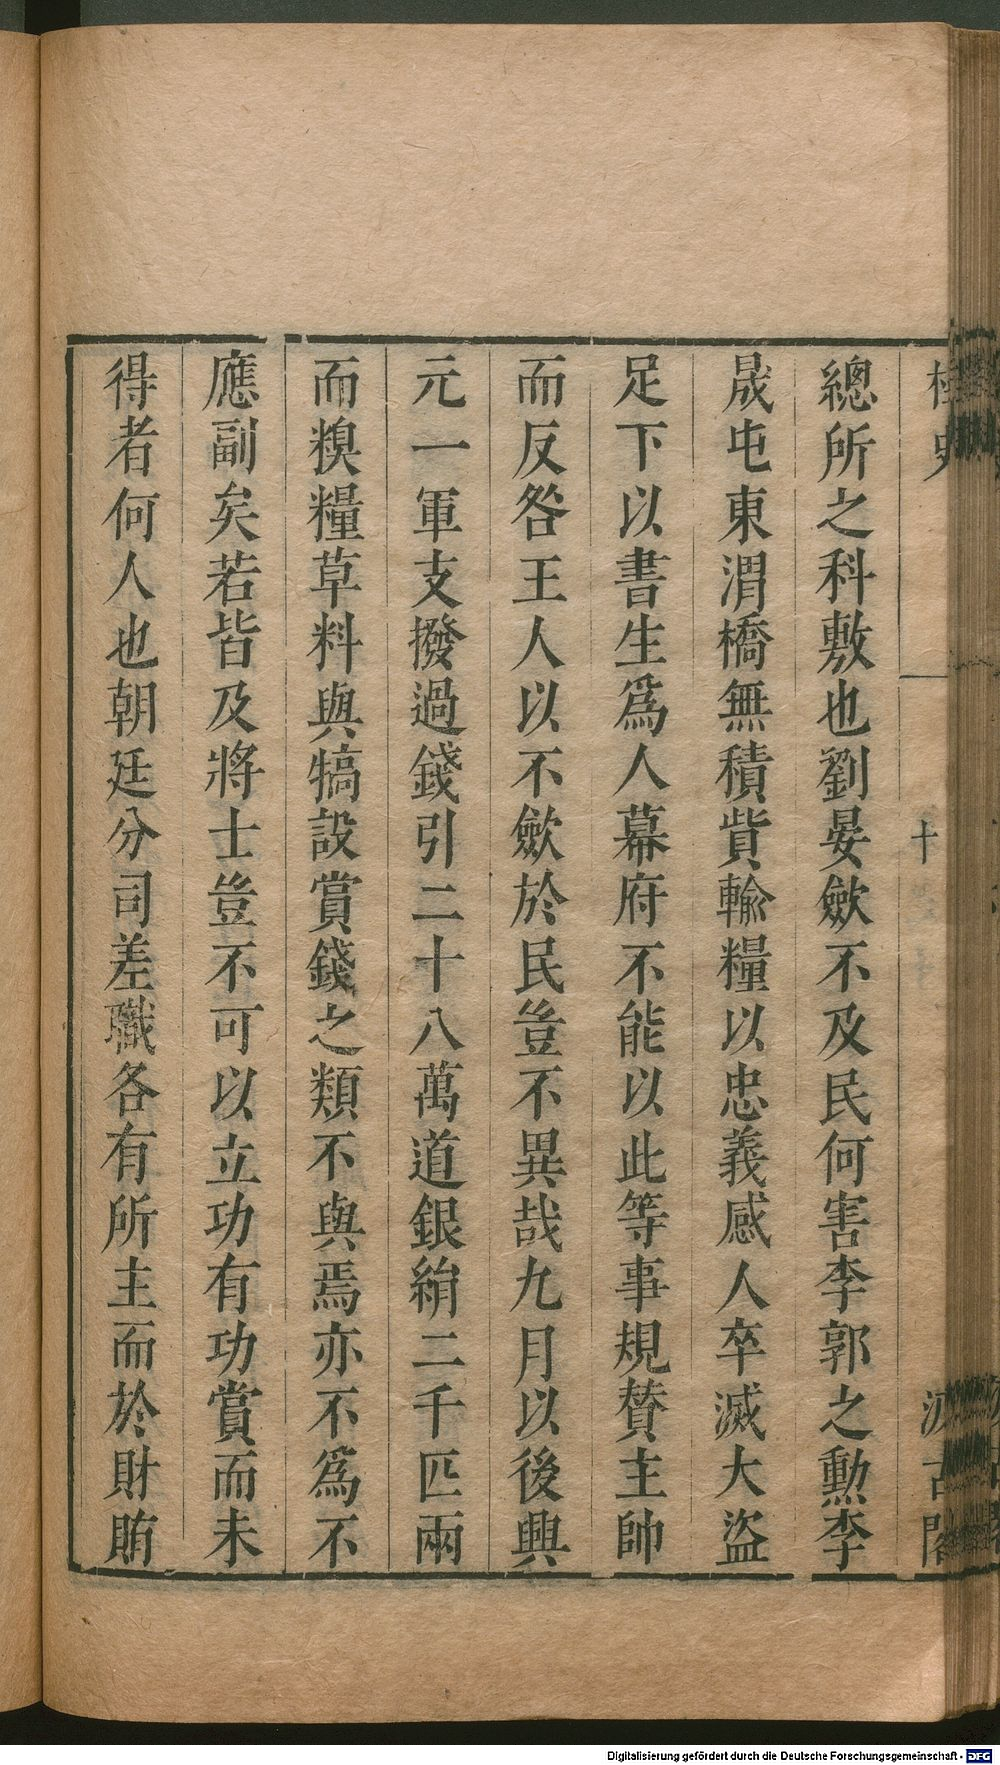 桯史
十
汲古閣
總所之科敷也劉晏斂不及民何害李郭之勲李
晟屯東渭橋無積貲輸糧以忠義感人卒滅大盜
足下以書生爲人幕府不能以此等事規贊主帥
而反咎王人以不斂於民豈不異哉九月以後興
元一軍支撥過錢引二十八萬道銀絹二千匹兩
而糗糧草料與犒設賞錢之類不與焉亦不爲不
應副矣若皆及將士豈不可以立功有功賞而未
得者何人也朝廷分司差職各有所主而於財賄
Digitalisierung gefördert durch die Deutsche Forschungsgemeinschaft - DFG